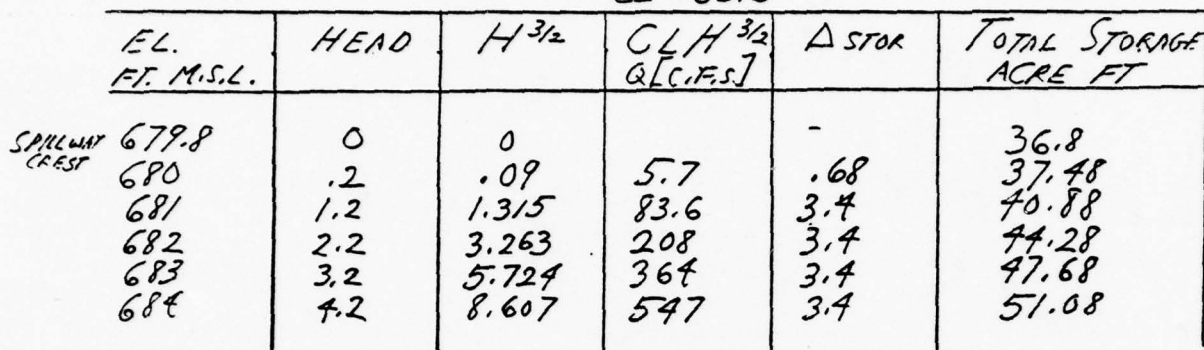 EL. HEAD H 3/2 CLH 3/2 Δ STOR TOTAL STORAGE
FT. M.S.L. Q[C.F.S.] ACRE FT
SPILLWAY CREST 679.8 0 0 - 36.8
680 .2 .09 5.7 .68 37.48
681 1.2 1.315 83.6 3.4 40.88
682 2.2 3.263 208 3.4 44.28
683 3.2 5.724 364 3.4 47.68
684 4.2 8.607 547 3.4 51.08